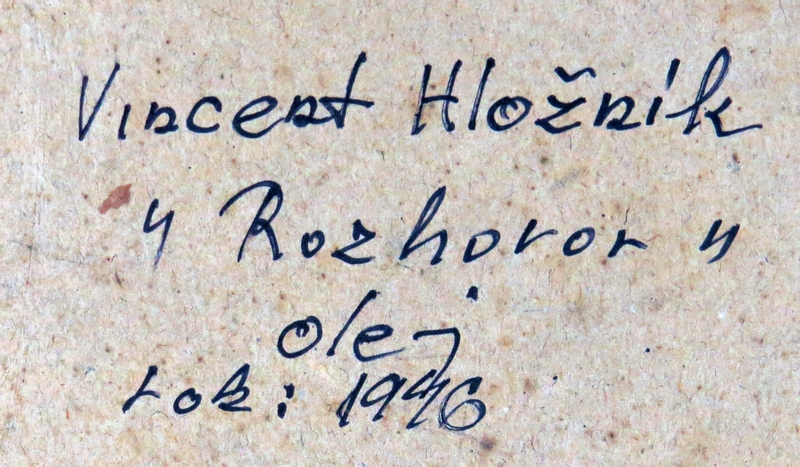 Vincent Hložník
" Rozhovor "
olej
rok: 1946